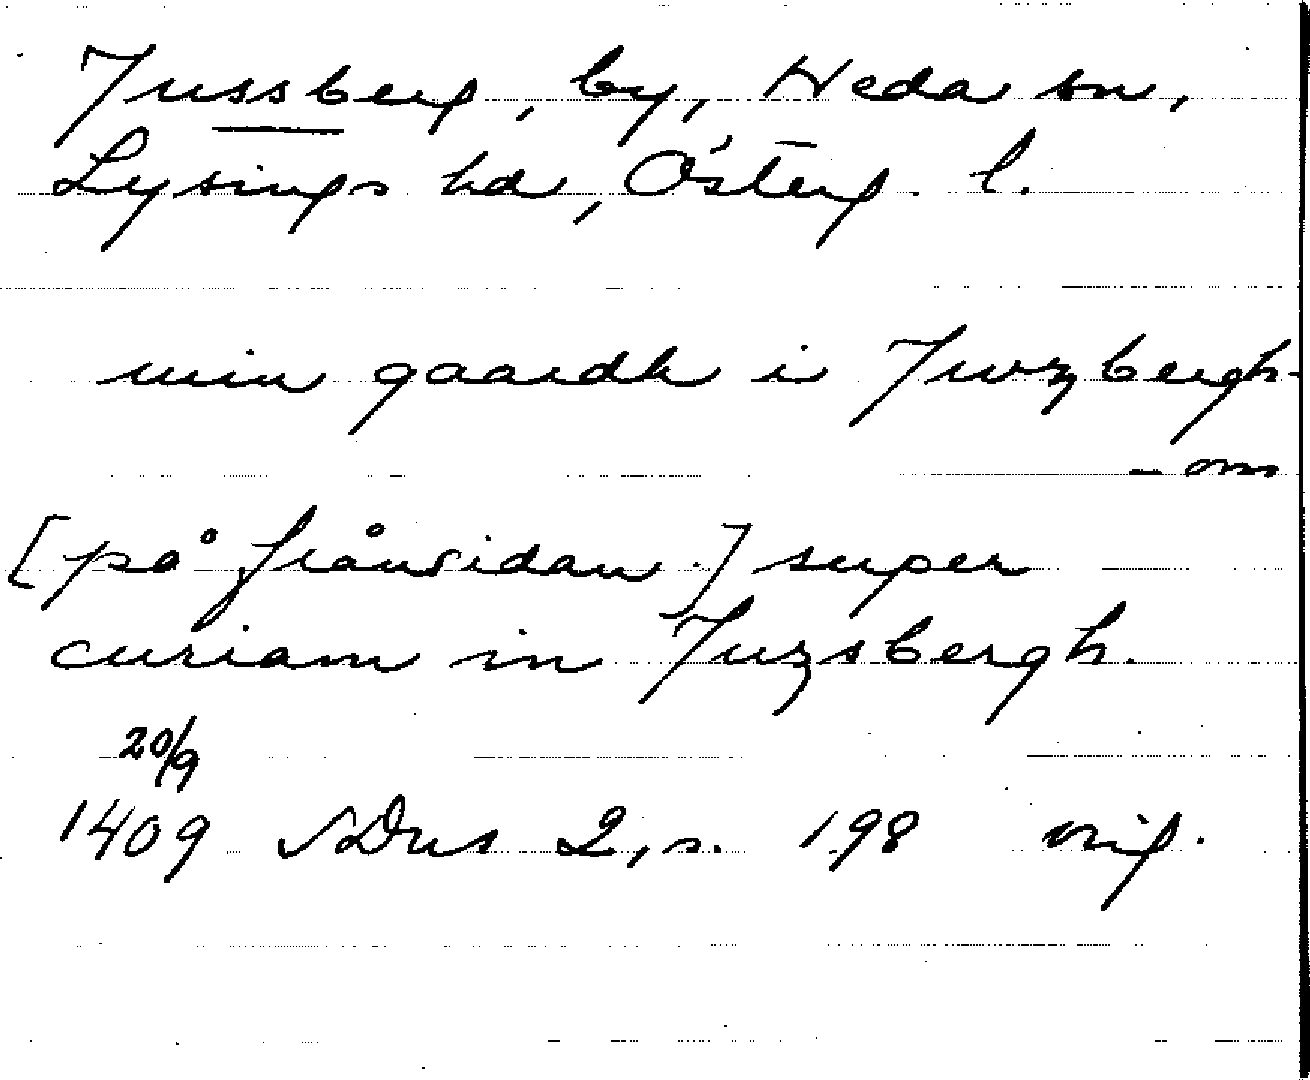 Jussberg, by, Heda sn,
Lysings hd, Österg. l.
min gaardh i Jwzbergh-
-om
[på frånsidan] super
curiam in Juzsbergh.
20/9
1409 SDns 2, s. 198 orig.